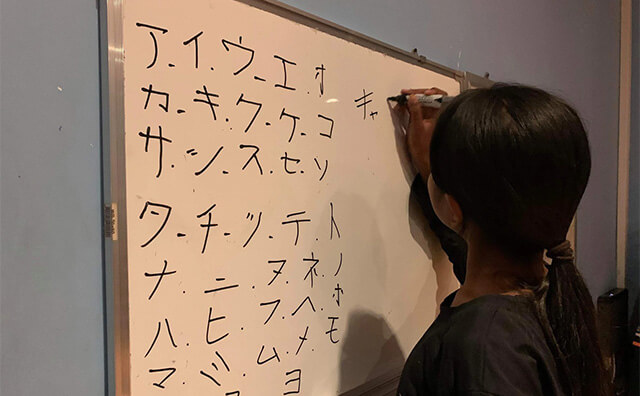 ア.イ.ウ.エ.オ
カ.キ.ク.ケ.コ
サ.シ.ス.セ.ソ
タ.チ.ツ.テ.ト
ナ.ニ.ヌ.ネ.ノ
ハ.ヒ.フ.ヘ.ホ
マ.ミ.ム.メ.モ
ヨ
キャ